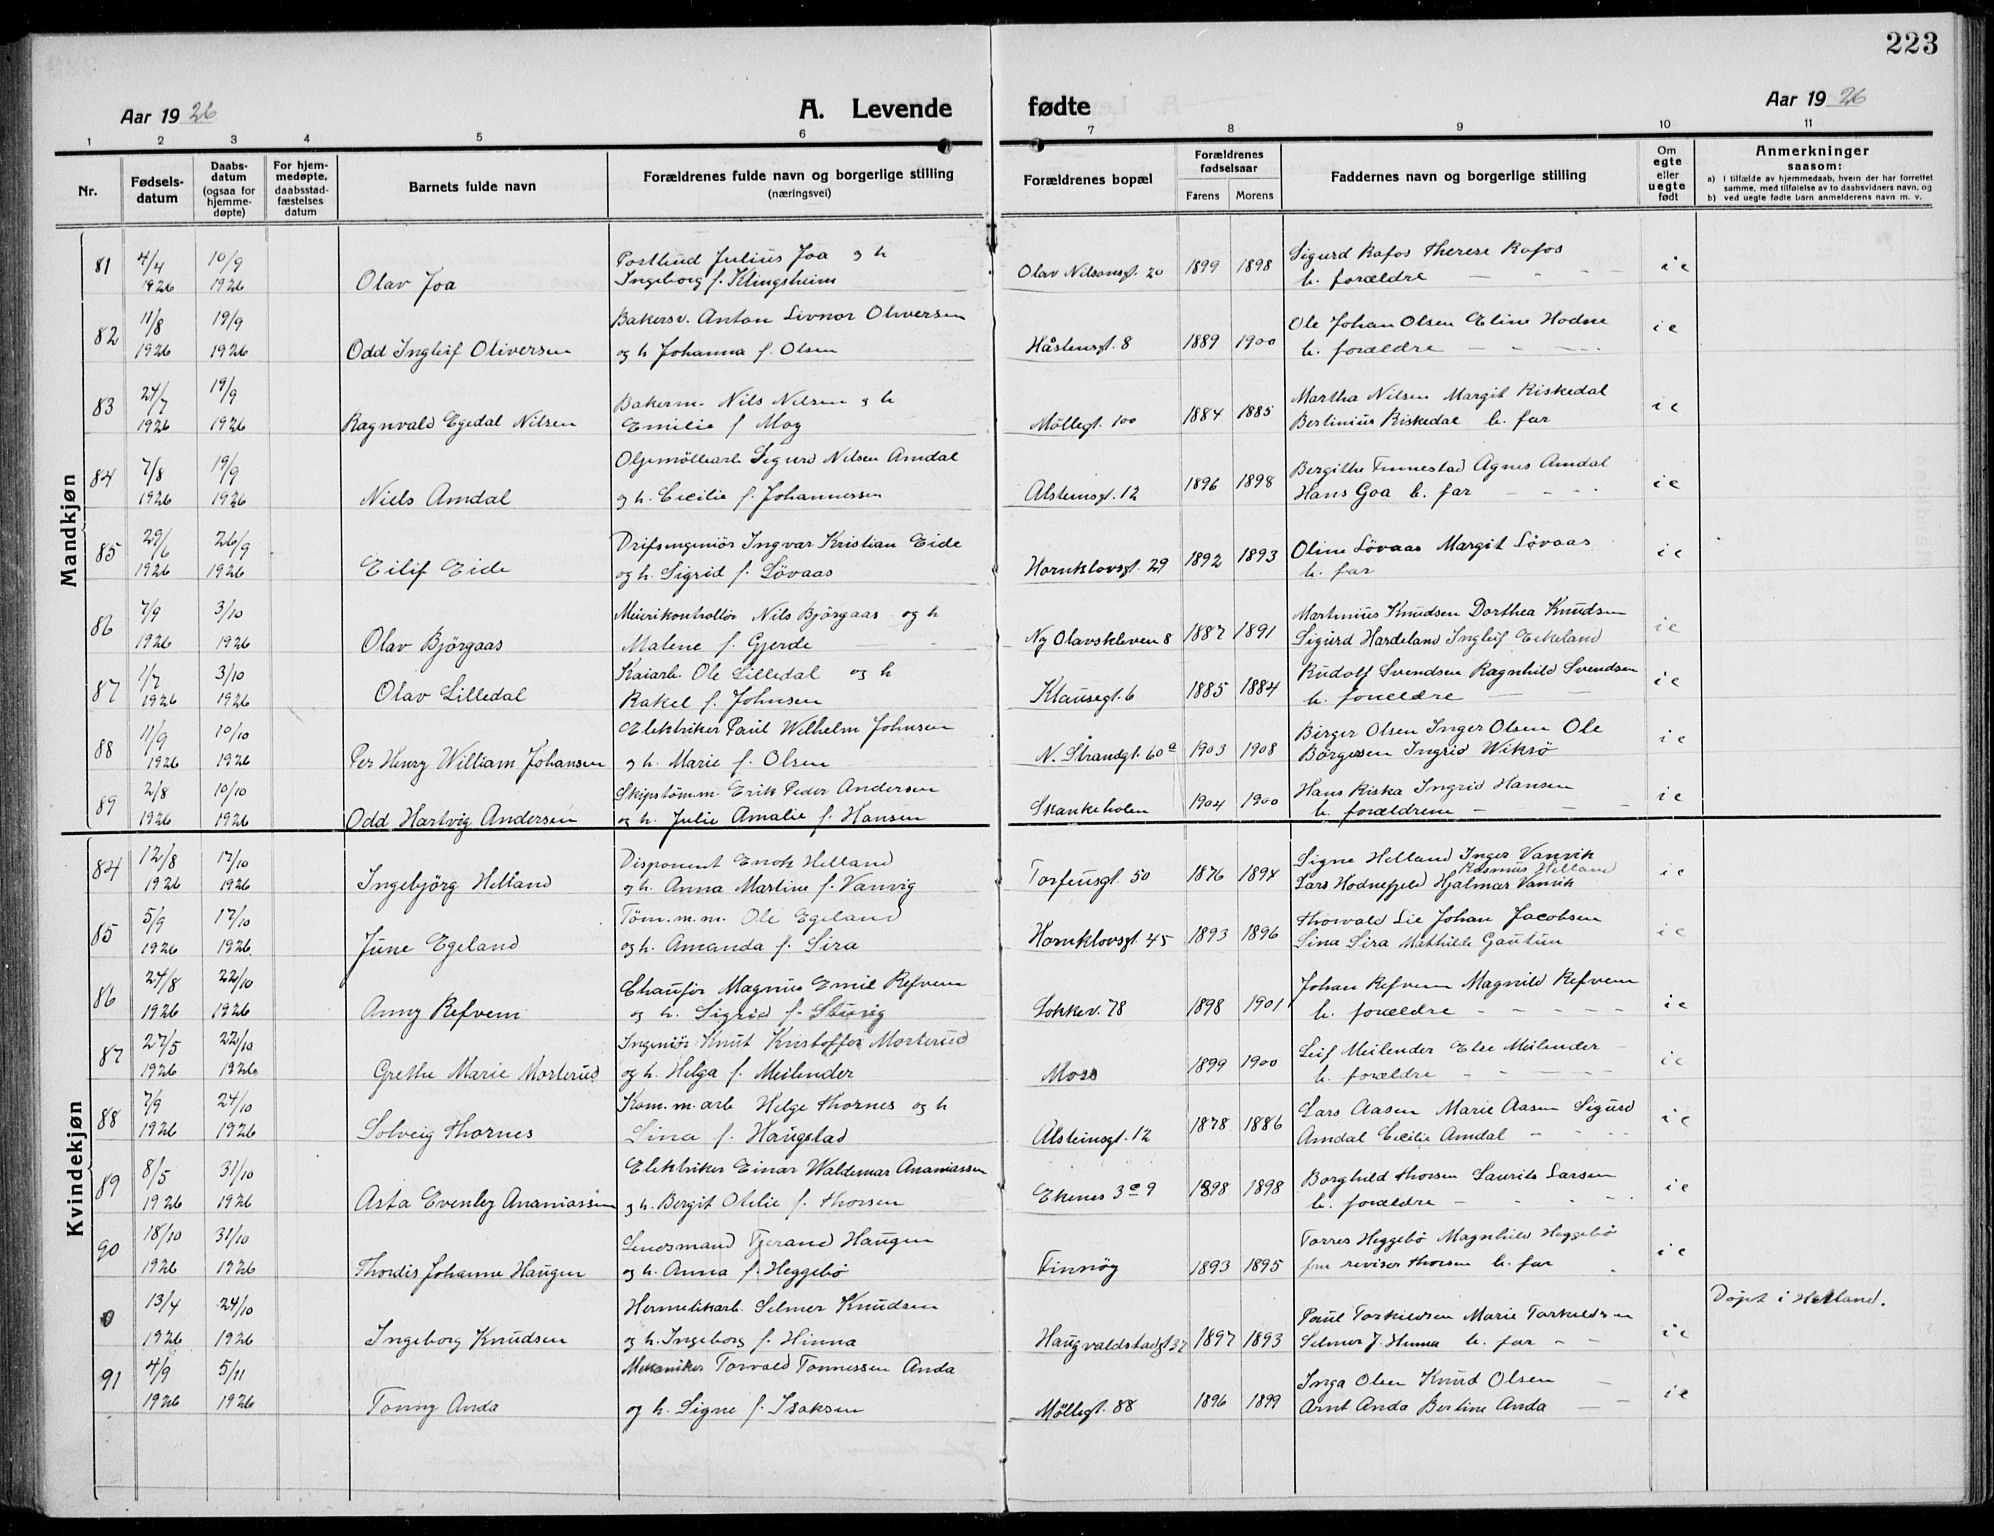 223
Aar 19 26
A. Levende fødte
Aar 19 26
1 2 3 4 5 6 7 8 9 10 11
Nr.
Fødsels-
datum
Daabs-
datum
(ogsaa for
hjemme-
døpte)
For hjem-
medøpte,
daabsstad-
fæstelses
datum
Barnets fulde navn
Forældrenes fulde navn og borgerlige stilling
(næringsvei)
Forældrenes bopæl
Forældrenes
fødselsaar
Farens Morens
Faddernes navn og borgerlige stilling
Om
egte
eller
uegte
født
Anmerkninger
saasom:
a) i tilfælde av hjemmedaab, hvem der har forrettet
samme, med tilføielse av to daabsvidners navn, og
b) ved uegte fødte barn anmelderens navn m. v.
Mandkjøn
81 4/4 10/9 Postbud Julius Joa og h Sigurd Rafos Therese Rafos
1926 1926 Olav Joa Ingeborg f. Klingsheim Olav Nilsonsgt. 20 1899 1898 b. forældre i e
82 11/8 19/9 Bakersv. Anton Livnor Oliversen Ole Johan Olsen Eline Hodne
1926 1926 Odd Ingleif Oliversen og h Johanna f. Olsen Håsteinsgt. 8 1889 1900 b. forældre i e
83 27/7 19/9 Bakerm. Nils Nilsen og h Martha Nilsen Margit Riskedal
1926 1926 Ragnvald Egedal Nilsen Emilie f Moy Møllegt. 100 1884 1885 Berlinius Riskedal b. far i e
84 7/8 19/9 Oljemøllearb Sigurd Nilsen Amdal Bergithe Finnestad Agnes Amdal
1926 1926 Niels Amdal og h. Cecilie f. Johannessen Alsteinsgt. 12 1896 1898 Hans Goa b. far i e
85 29/6 26/9 Drifsingeniør Ingvar Kristian Eide Oline Løvaas Margit Løvaas
1926 1926 Eilif Eide og h. Sigrid f. Løvaas Hornklovsgt. 29 1892 1893 b. far i e
86 7/9 3/10 Meierikontrollør Nils Bjørgaas og h Martinius Knudsen Dorthea Knudsen
1926 1926 Olav Bjørgaas Malene f. Gjerde Ny Olavskleven 8 1887 1891 Sigurd Hardeland Ingleif Eikeland i e
87 1/7 3/10 Kaiarb. Ole Lilledal og h Rudolf Svendsen Ragnhild Svendsen
1926 1926 Olav Lilledal Rakel f. Johnsen Klausegt. 6 1885 1884 b. forældre i e
88 11/9 10/10 Elektriker Paul Wilhelm Johnsen Birger Olsen Inger Olsen Ole
1926 1926 Per Henry William Johansen og h. Marie f. Olsen N. Strandgt. 60 a 1903 1908 Børgesen Ingrid Wiksø i e
89 2/8 10/10 Skipstømm. Erik Peder Andersen Hans Riska Ingrid Hansen
1926 1926 Odd Hartvig Andersen og h. Julie Amalie f. Hansen Skankeholen 1904 1900 b. forældrene i e
Kvindekjøn
84 12/8 17/10 Disponent Enok Helland Signe Helland Inger Vanvik
Rasmus Helland
1926 1926 Ingebjörg Helland og h. Anna Martine f. Vanvig Torfeusgt. 50 1876 1894 Lars Hodnefjeld Hjalmar Vanvik i e
85 5/9 17/10 Tøm.m.m. Ole Egeland Thorvald Lie Johan Jacobsen
1926 1926 June Egeland og h. Amanda f. Sira Hornklovsgt. 45 1893 1896 Sina Sira Mathilde Gautun i e
86 24/8 22/10 Chauffør Magnus Emil Refvem Johan Refvem Magnild Refvem
1926 1926 Anny Refvem og h. Sigrid f. Stuvig Lokkev. 78 1898 1901 b. forældre i e
87 27/5 22/10 Ingeniør Knut Kristoffer Morterud Leif Meilender Else Meilender
1926 1926 Grethe Marie Morterud og h. Helga f. Meilender Moss 1899 1900 b. forældre i e
88 7/9 24/10 Kom.m.arb Helge Thornes og h Lars Aasen Marie Aasen Sigurd
1926 1926 Solveig Thornes Lina f. Haugstad Alsteinsgt. 12 1878 1886 Amdal Cecilie Amdal i e
89 8/5 31/10 Elektriker Einar Waldemar Ananiassen Borghild Thorsen Laurits Larsen
1926 1926 Asta Evenley Ananiassen og h. Bergit Otilie f. Thorsen Ekenes 3 e 9 1898 1898 b. forældre i e
90 18/10 31/10 Lensmand Tjerand Haugen Torres Heggebø Magnhild Heggebø
1926 1926 Thordis Johanne Haugen og h. Anna f. Heggebø Finnøy 1893 1895 fru revisor Thorsen b. far i e
0 13/4 24/10 Hermetikarb. Selmer Knudsen Paul Torkildsen Marie Torkildsen Døpt i Hetland.
1926 1926 Ingeborg Knudsen og h. Ingeborg f. Hinna Haugvaldstadgt 37 1897 1893 Selmer J. Hinna b. far i e
91 4/9 5/11 Mekaniker Torvald Tonnessen Anda Inga Olsen Knud Olsen
1926 1926 Tonny Anda og h. Signe f. Isaksen Møllegt. 88 1896 1899 Arnt Anda Berline Anda i e